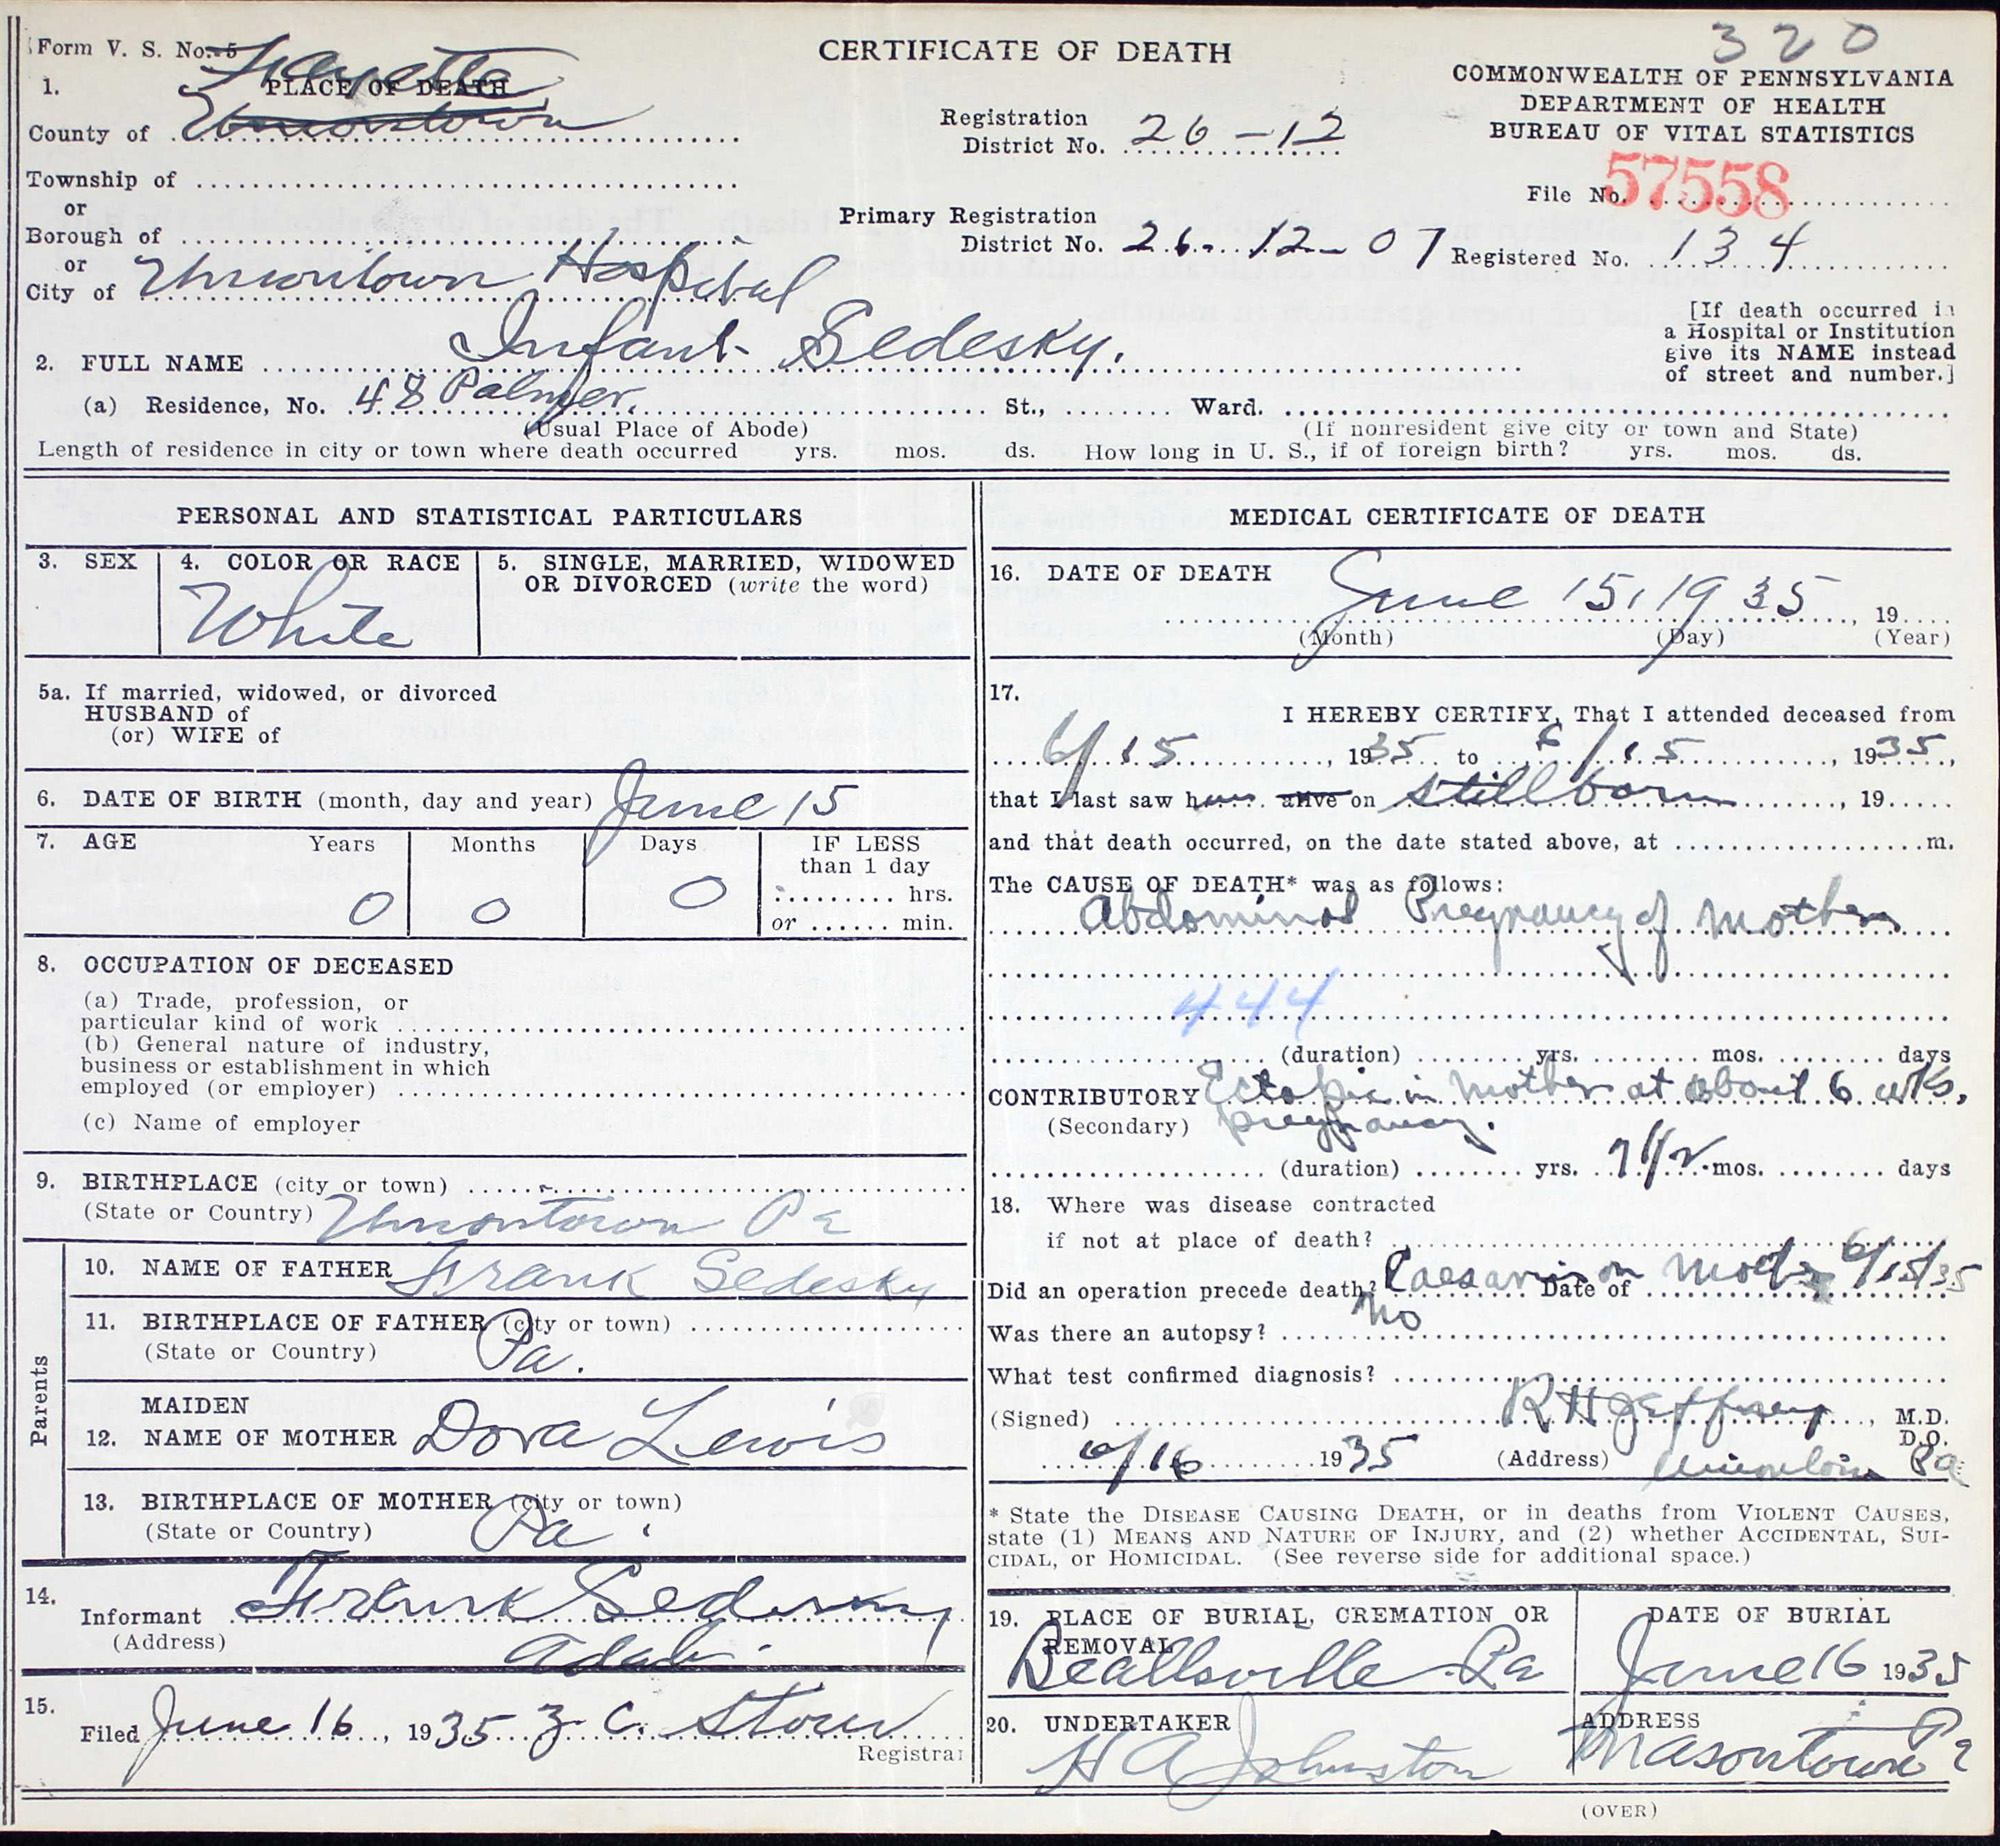 320
Form V. S. No. 5
CERTIFICATE OF DEATH
COMMONWEALTH OF PENNSYLVANIA
DEPARTMENT OF HEALTH
BUREAU OF VITAL STATISTICS
1. PLACE OF DEATH
Fayette
County of Uniontown
Registration
District No. 26-12
File No. 57558
Township of
or
Borough of
or
City of Uniontown Hospital
Primary Registration
District No. 26-12-07
Registered No. 134
[If death occurred in
a Hospital or Institution
give its NAME instead
of street and number.]
2. FULL NAME Infant Sedesky.
(a) Residence, No. 48 Palmer. St., Ward.
(Usual Place of Abode) (If nonresident give city or town and State)
Length of residence in city or town where death occurred yrs. mos. ds. How long in U. S., if of foreign birth? yrs. mos. ds.
PERSONAL AND STATISTICAL PARTICULARS
3. SEX
4. COLOR OR RACE
White
5. SINGLE, MARRIED, WIDOWED
OR DIVORCED (write the word)
5a. If married, widowed, or divorced
HUSBAND of
(or) WIFE of
6. DATE OF BIRTH (month, day and year) June 15
7. AGE Years Months Days IF LESS
than 1 day
hrs.
or min.
0 0 0
8. OCCUPATION OF DECEASED
(a) Trade, profession, or
particular kind of work
(b) General nature of industry,
business or establishment in which
employed (or employer)
(c) Name of employer
9. BIRTHPLACE (city or town)
(State or Country) Uniontown Pa
Parents
10. NAME OF FATHER Frank Sedesky
11. BIRTHPLACE OF FATHER (city or town)
(State or Country) Pa.
MAIDEN
12. NAME OF MOTHER Dora Lewis
13. BIRTHPLACE OF MOTHER (city or town)
(State or Country) Pa.
14.
Informant Frank Sedesky
(Address)
15.
Filed June 16, 1935 Z. C.
Registrar
MEDICAL CERTIFICATE OF DEATH
16. DATE OF DEATH June 15, 1935, 19
(Month) (Day) (Year)
17.
I HEREBY CERTIFY, That I attended deceased from
6/15, 1935 to 6/15, 1935,
that I last saw h alive on stillborn, 19
and that death occurred, on the date stated above, at m.
The CAUSE OF DEATH* was as follows:
Abdominal Pregnancy of Mother
444
(duration) yrs. mos. days
CONTRIBUTORY Ectopic in mother at about 6 wks.
(Secondary) pregnancy.
(duration) yrs. 7 1/2 mos. days
18. Where was disease contracted
if not at place of death?
Did an operation precede death? Caesarian on Mother Date of 6/15/35
Was there an autopsy? No
What test confirmed diagnosis?
(Signed) R H Jeffrey, M.D.
D.O.
6/16 1935 (Address) Uniontown Pa
* State the DISEASE CAUSING DEATH, or in deaths from VIOLENT CAUSES,
state (1) MEANS AND NATURE OF INJURY, and (2) whether ACCIDENTAL, SUI-
CIDAL, or HOMICIDAL. (See reverse side for additional space.)
19. PLACE OF BURIAL, CREMATION OR
REMOVAL
Beallsville Pa
DATE OF BURIAL
June 16 1935
20. UNDERTAKER
H A Johnston
ADDRESS
Masontown Pa
(OVER)